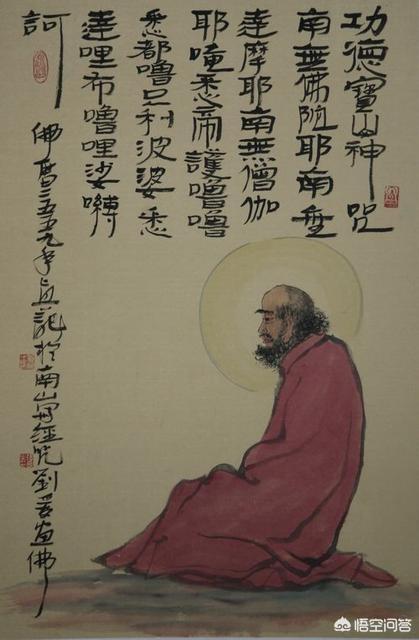 功德寶山神咒
南無佛陀耶南無
達摩耶南無僧伽
耶唵悉帝護嚕嚕
悉都嚕只利波婆悉
達哩布嚕哩娑嚩
訶
佛曆二五五九年 於南山寫經院劉 畫佛
悟空问答